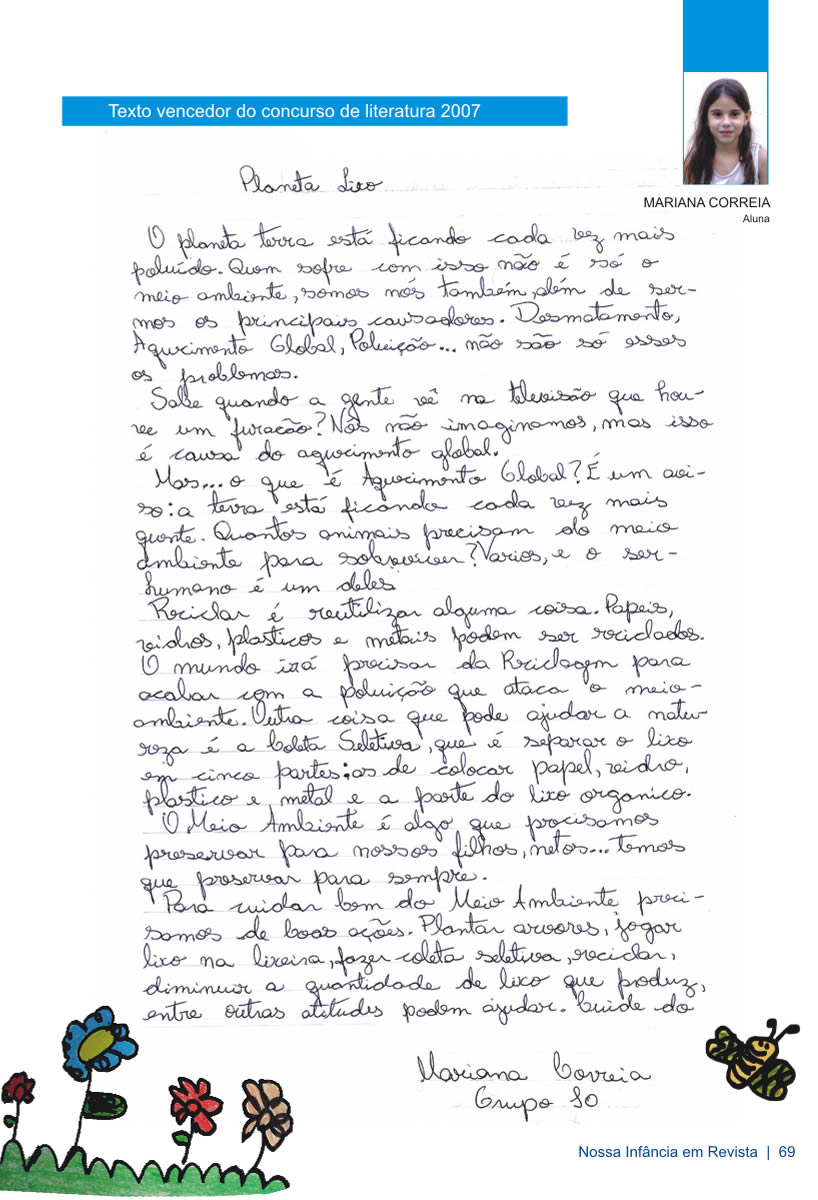 Texto vencedor do concurso de literatura 2007
MARIANA CORREIA
Aluna
Planeta Lixo
O planeta terra está ficando cada vez mais
poluído. Quem sofre com isso não é só o
meio ambiente, somos nós também, além de ser-
mos os principais causadores. Desmatamento,
Aquecimento Global, Poluição... não são só esses
os problemas.
Sabe quando a gente vê na televisão que hou-
ve um furacão? Nós não imaginamos, mas isso
é causa do aquecimento global.
Mas... o que é Aquecimento Global? É um avi-
so: a terra está ficando cada vez mais
quente. Quantos animais precisam do meio
ambiente para sobreviver? Varios, e o ser-
humano é um deles
Reciclar é reutilizar alguma coisa. Papeis,
vidros, plasticos e metais podem ser reciclados.
O mundo irá precisar da Reciclagem para
acabar com a poluição que ataca o meio-
ambiente. Outra coisa que pode ajudar a natu-
reza é a Coleta Seletiva, que é separar o lixo
em cinco partes: as de colocar papel, vidro,
plastico e metal e a parte do lixo organico.
O Meio Ambiente é algo que precisamos
preservar para nossos filhos, netos... temos
que preservar para sempre.
Para cuidar bem do Meio Ambiente preci-
samos de boas ações. Plantar arvores, jogar
lixo na lixeira, fazer coleta seletiva, reciclar,
diminuir a quantidade de lixo que produz,
entre outras atitudes podem ajudar. Cuide do
Mariana Correia
Grupo 10
Nossa Infância em Revista | 69